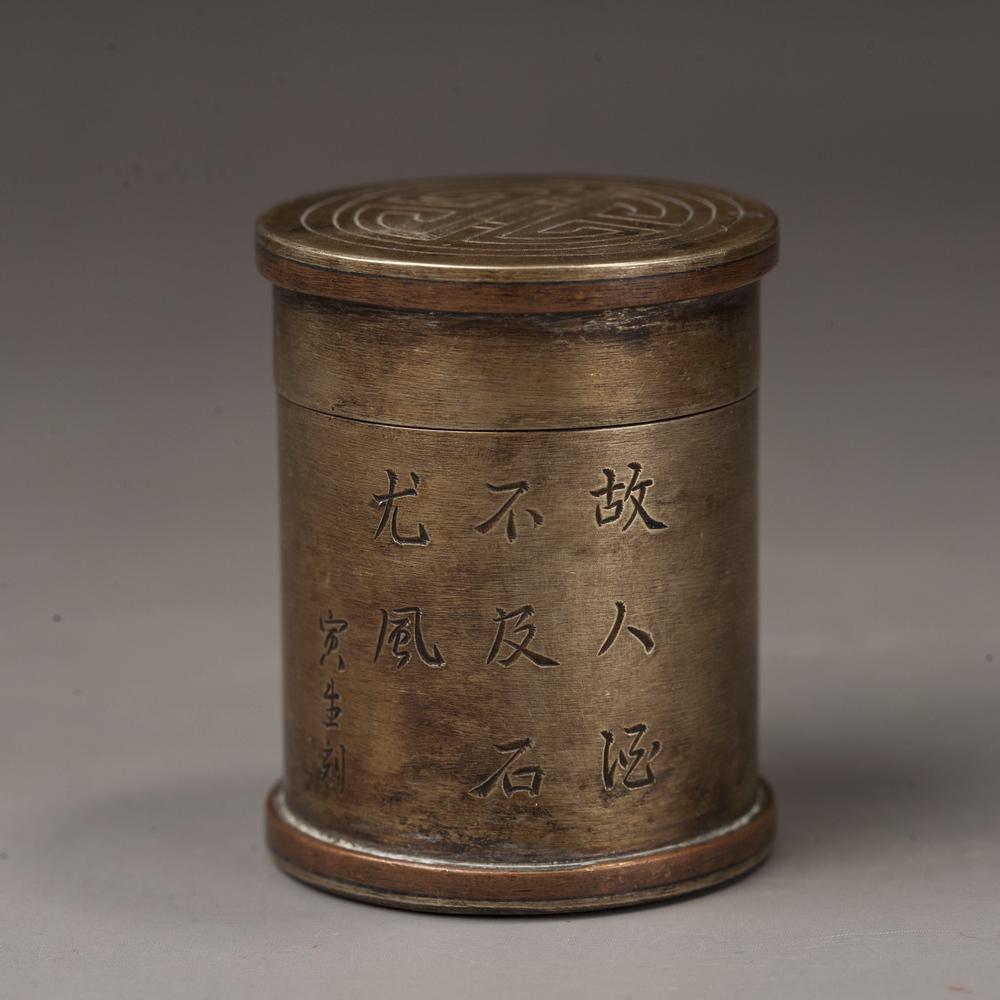 故人酒
不及石
尤風
寅生刻